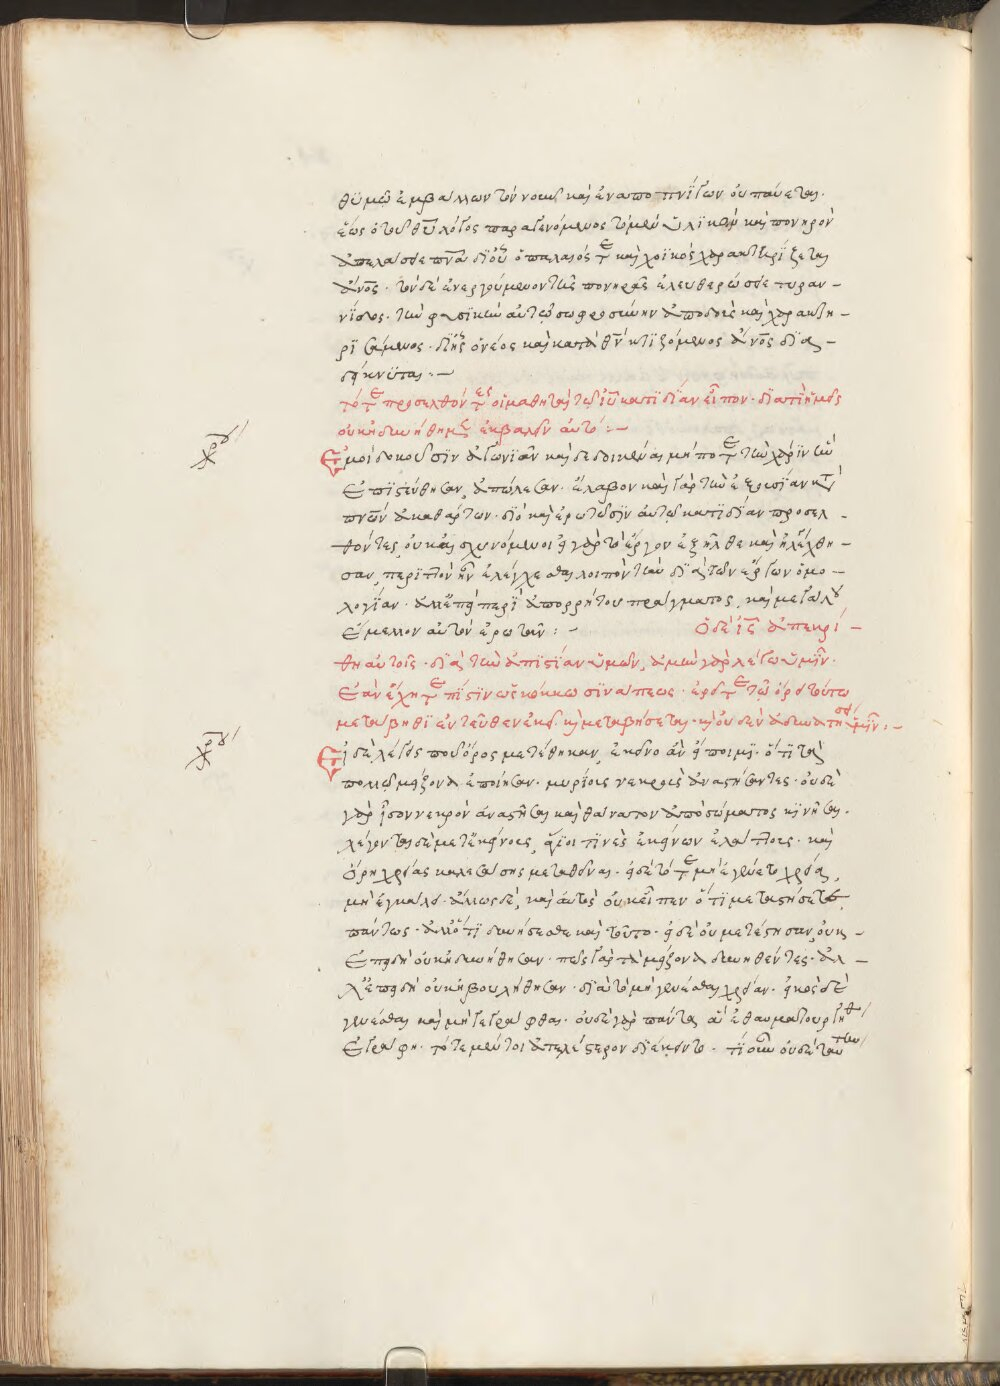 θυμῶ ἐμβάλλων τὸν νοῦν καὶ ἐναποπνίγων οὐ παύεται.
ἕως ὁ τοῦ θῦ λόγος παραγενόμενος τὸ μὲν ὑλικὸν καὶ πονηρὸν
ἀπελάσει πνᾶ δι οὗ ὁ παλαιός τε καὶ χοϊκὸς χαρακτηρίζεται
ἄνος. τὸν δὲ ἐνεργούμενον τῆς πονηρᾶς ἐλευθερώσει τυραν-
νίδος. τὴν φυσικὴν αὐτῷ σωφροσύνην ἀποδοὺς καὶ χαρακτη-
ρισάμενος. δι ἧς ὁ νέος καὶ κατὰ θν κτιζόμενος ἄνος δια-
δείκνυται:-
τότε προσελθόντες οἱ μαθηταὶ τῷ ιυ κατιδίαν εἶπον. διατί ἡμεῖς
οὐκ ἠδυνήθημεν ἐκβαλεῖν αὐτό:-
χρυ
Ἐμοὶ δοκοῦσιν ἀγωνιᾶν καὶ δεδοικέναι μήποτε τὴν χάριν ἣν
ἐπιστεύθησαν, ἀπώλεσαν. ἔλαβον καὶ γὰρ τὴν ἐξουσίαν κατὰ
πνῶν ἀκαθάρτων. διὸ καὶ ἐρωτῶσιν αὐτῷ κατιδίαν προσελ-
θόντες, οὐκ αἰσχυνόμενοι εἰ γὰρ τὸ ἔργον ἐξῆλθε καὶ ἠλέγχθη-
σαν, περιττὸν ἦν ἐλέγχεσθαι λοιπὸν τὴν διὰ τῶν ἔργων ὁμο-
λογίαν. ἀλλ' ἐπεὶ περὶ ἀπορρήτου πράγματος, καὶ μεγάλου
ἔμελλον αὐτὸν ἐρωτᾶν:- Ὁ δὲ ις ἀπεκρί-
θη αὐτοῖς. διὰ τὴν ἀπιστίαν ὑμῶν, ἀμὴν γὰρ λέγω ὑμῖν.
ἐὰν ἔχητε πίστιν ὡς κόκκον σινάπεως. ἐρεῖτε τῶ ὄρει τούτω
μετάβηθι ἐντεῦθεν ἐκεῖ. καὶ μεταβήσεται. καὶ οὐδὲν ἀδυνατήσει ὑμῖν:-
χρυ
Εἰ δὲ λέγεις ποῦ ὄρος μετέθηκαν, ἐκεῖνο ἂν εἴποιμι. ὅτι τὰ
πολλῷ μείζονα ἐποίησαν. μυρίους νεκροὺς ἀναστήσαντες. οὐδὲ
γὰρ ἴσον νεκρὸν ἀναστῆσαι καὶ θάνατον ἀπὸ σώματος κινῆσαι.
λέγονται δὲ μετ' ἐκείνους, ἅγιοί τινες ἐκείνων ἐλάττους. καὶ
ὄρη χρείας καλεσάσης μεταθεῖναι. εἰ δὲ τότε μὴ ἐγένετο χρεία,
μὴ ἐγκάλει. ἄλλως δὲ, καὶ αὐτὸς οὐκ εἶπεν ὅτι μεταστήσετε
πάντως. ἀλλ' ὅτι δυνήσεσθε καὶ τοῦτο. εἰ δὲ οὐ μετέστησαν, οὐκ
ἐπειδὴ οὐκ ἠδυνήθησαν. πῶς γὰρ τὰ μείζονα δυνηθέντες. ἀλ-
λ' ἐπειδὴ οὐκ ἠβουλήθησαν. διὰ τὸ μὴ γενέσθαι χρείαν. εἰκὸς δὲ
γενέσθαι καὶ μὴ γεγράφθαι. οὐδὲ γὰρ πάντα ἃ ἐθαυματούργησαν
ἐγράφη. τότε μέντοι ἀτελέστερον διέκειντο. τί οὖν οὐδὲ ταύτην